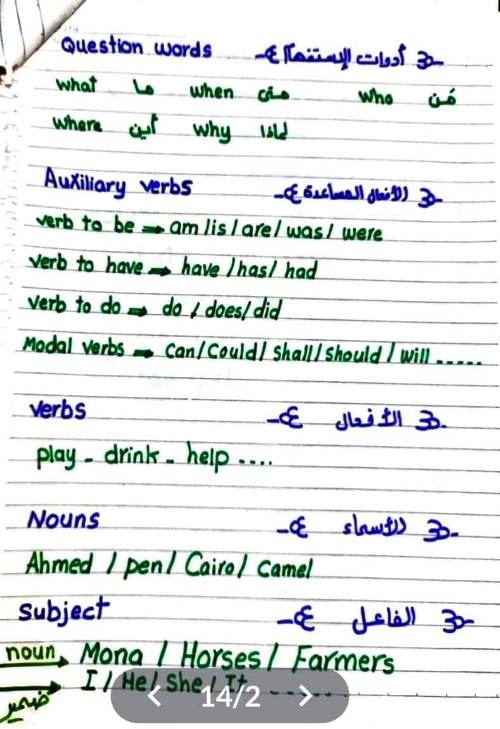 Question words أدوات الإستفهام
what ما when متى who مَن
where أين why لماذا
Auxiliary verbs الأفعال المساعدة
verb to be → am / is / are / was / were
verb to have → have / has / had
verb to do → do / does / did
Modal verbs → can / Could / Shall / Should / will .....
verbs الأفعال
play - drink - help ....
Nouns الأسماء
Ahmed / pen / Cairo / Camel
subject الفاعل
noun → Mona / Horses / Farmers
ضمير → I / He / She / It ......
14/2